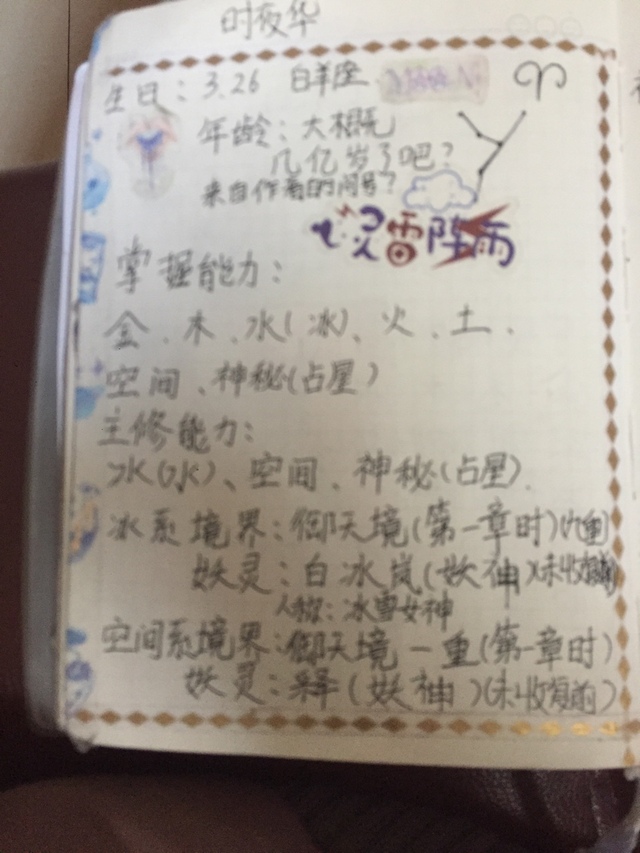 时夜华
生日：3.26 白羊座
年龄：大概
几亿岁了吧？
来自作者的问号？
心灵雷阵雨
掌握能力：
金、木、水(冰)、火、土、
空间、神秘(占星)
主修能力：
冰(水)、空间、神秘(占星)、
冰系境界：御天境(第一章时)(九重)
妖灵：白冰岚(妖神)(未收复前)
人称：冰雪女神
空间系境界：御天境一重(第一章时)
妖灵：释(妖神)(未收复前)